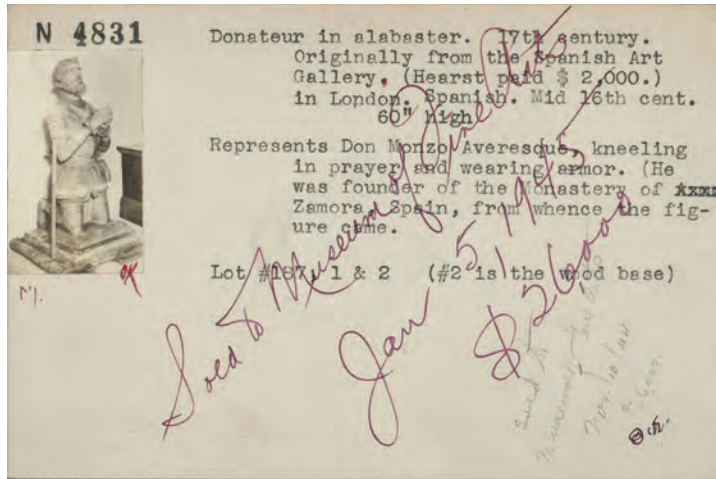 N 4831
Donateur in alabaster. 17th sentury.
Originally from the Spanish Art
Gallery. (Hearst paid $ 2,000.)
in London. Spanish. Mid 16th cent.
60" high
Represents Don Monzo Averesque, kneeling
in prayer and wearing armor. (He
was founder of the Monastery of xxxx
Zamora, Spain, from whence the fig-
ure came.
Lot #167, 1 & 2 (#2 is the wood base)
Sold to Museum of Fine Arts
Jan 5, 1945
OK
N.